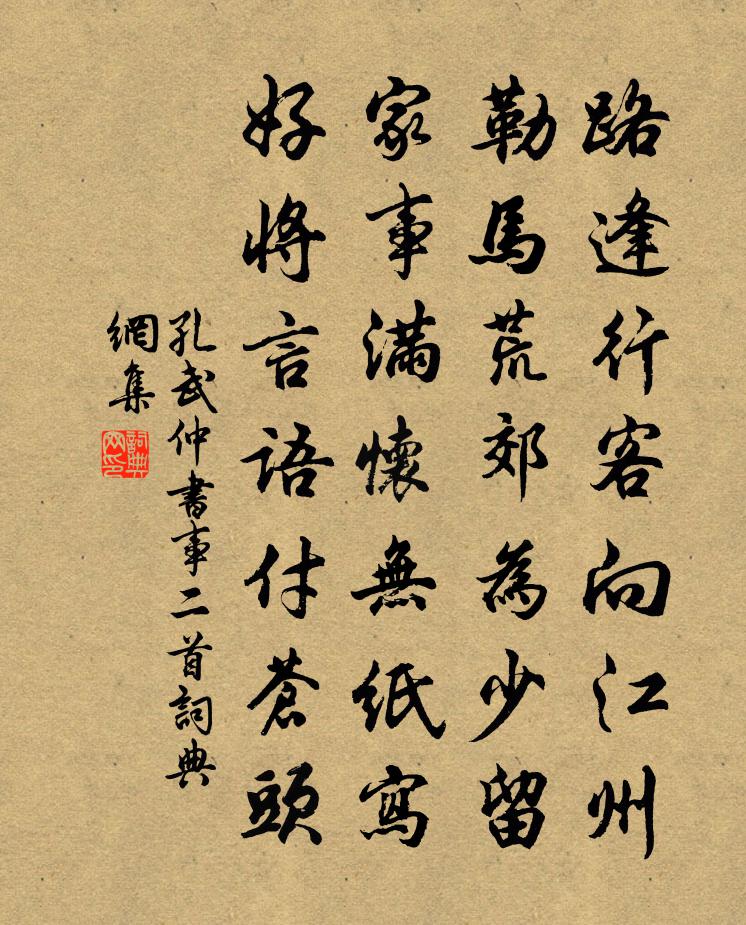 路逢行客向江州
勒馬荒郊為少留
家事滿懷無紙寫
好將言語付蒼頭
孔武仲書事二首詞典
網集
詞典
网印